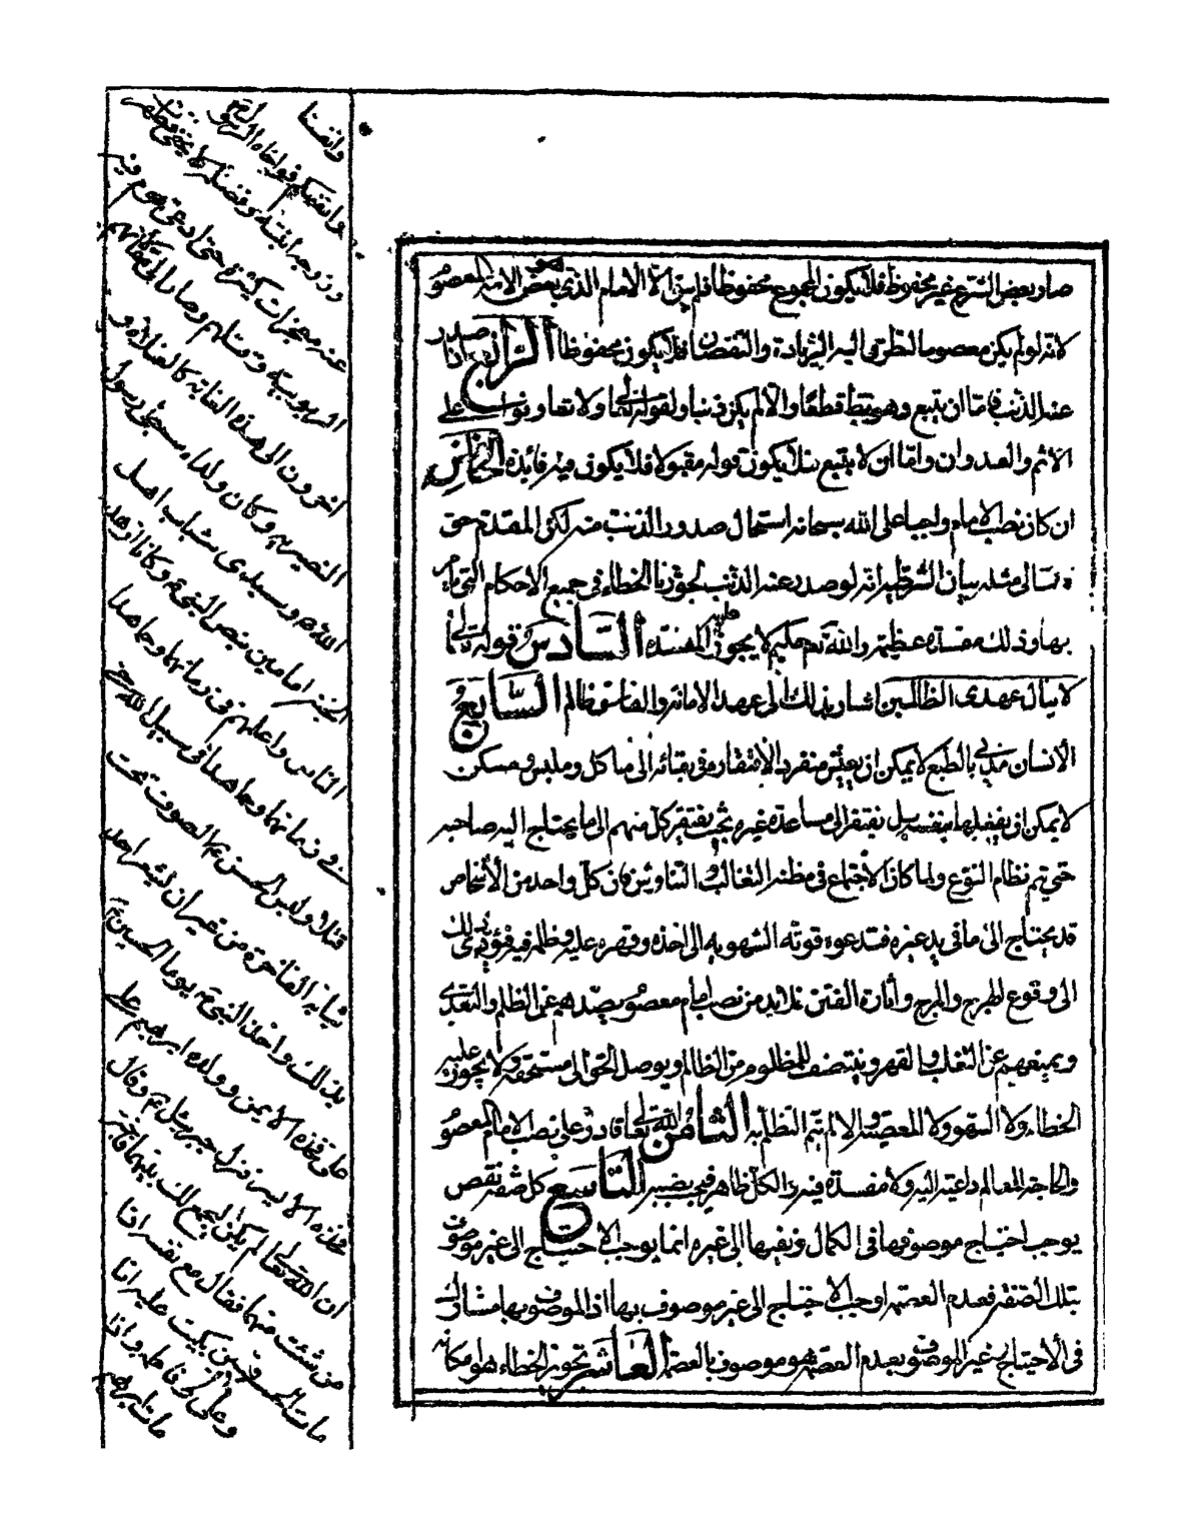 صار بعض الشرع غير محفوظ فلا يكون المجموع محفوظا فلم يبق الا الامام الذى بعض الامة المعصو
لانه لو لم يكن معصوما لتطرق اليه الزيادة والنقصان فلا يكون محفوظا الرابع اذا صدر
عنه الذنب فاما ان يتبع وهو بط قطعا والا لم يكن ذنبا ولقوله تعالى ولا تعاونوا على
الاثم والعدوان واما ان لا يتبع فلا يكون قوله مقبولا فلا يكون فيه فائدة الخامس
ان كان نصب الامام واجبا على الله سبحانه استحال صدور الذنب منه لكن المقدم حق
فالتالى مثله بيان الشرطية انه لو صدر عنه الذنب لجوزنا الخطاء فى جميع الاحكام التى يامر
بها وذلك مفسدة عظيمة والله تع حكيم لا يجوز عليه المفسدة السادس قوله تعالى
لا ينال عهدى الظالمين اشار بذلك الى عهد الامامة والفاسق ظالم السابع
الانسان مدنى بالطبع لا يمكن ان يعيش منفردا لافتقاره فى بقائه الى ماكل وملبس ومسكن
لا يمكن ان يفعلها بنفسه بل يفتقر الى مساعدة غيره بحيث يفتقر كل منهم الى ما يحتاج اليه صاحبه
حتى يتم نظام النوع ولما كان الاجتماع فى مظنة التغالب و التناوش فان كل واحد من الأشخاص
قد يحتاج الى ما فى يد غيره فتدعوه قوته الشهوية الى اخذه وقهره عليه وظلمه فيه فيؤدى ذلك
الى وقوع الهرج والمرج وأثارة الفتن فلا بد من نصب امام معصوم يصدهم عن الظلم والتعدى
ويمنعهم عن التغلب و القهر وينتصف للمظلوم من الظالم ويوصل الحق الى مستحقه ولا يجوز عليه
الخطاء ولا السهو ولا المعصية والا لم يتم النظام به الثامن الله تعالى قادر على نصب الامام المعصو
والحاجة للعالم داعية اليه ولا مفسدة فيه والكل ظاهر فيجب نصبه التاسع كل صفة نقص
يوجب احتياج موصوفها فى الكمال ونفيها الى غيره انما يوجب الاحتياج الى غير موصوف
بتلك الصفة فعدم العصمة اوجب الاحتياج الى غير موصوف بها اذ الموصوف بها مشارك
فى الاحتياج غير الموصوف بعدم العصمة هو موصوف بالعصمة العاشر تجويز الخطاء هو امكانه
وانفسنا
وانفسكم فواخاه الرسول
وزوجه ابنته وفضله لا يخفى وظهر
عنه معجزات كثيرة حتى ادعى قوم فيه
الربوبية وقتلهم وصار الى مقالتهم
اخرون الى هذه الغاية كالغلاة و
النصيرية وكان ولداه سبطى رسول
الله ص وسيدى شباب اهل
الجنة امامين بنص النبى ص وكانا ازهد
الناس واعلمهم فى زمانهما وجاهدا
فى سبيل الله حتى
قتلا ولبس الحسن ع الصوف تحت
ثيابه الفاخرة من غير ان يشعر احد
بذلك واخذ النبى ص يوما الحسين ع
على فخذه الايمن وولده ابرهيم على
فخذه الايسر فنزل جبرئيل ع وقال
ان الله تعالى لم يكن ليجمع لك بينهما فاختر
من شئت منهما فقال مع نفسه اذا
مات الحسين بكيت عليه انا
وعلى وفاطمة واذا
مات ابرهيم